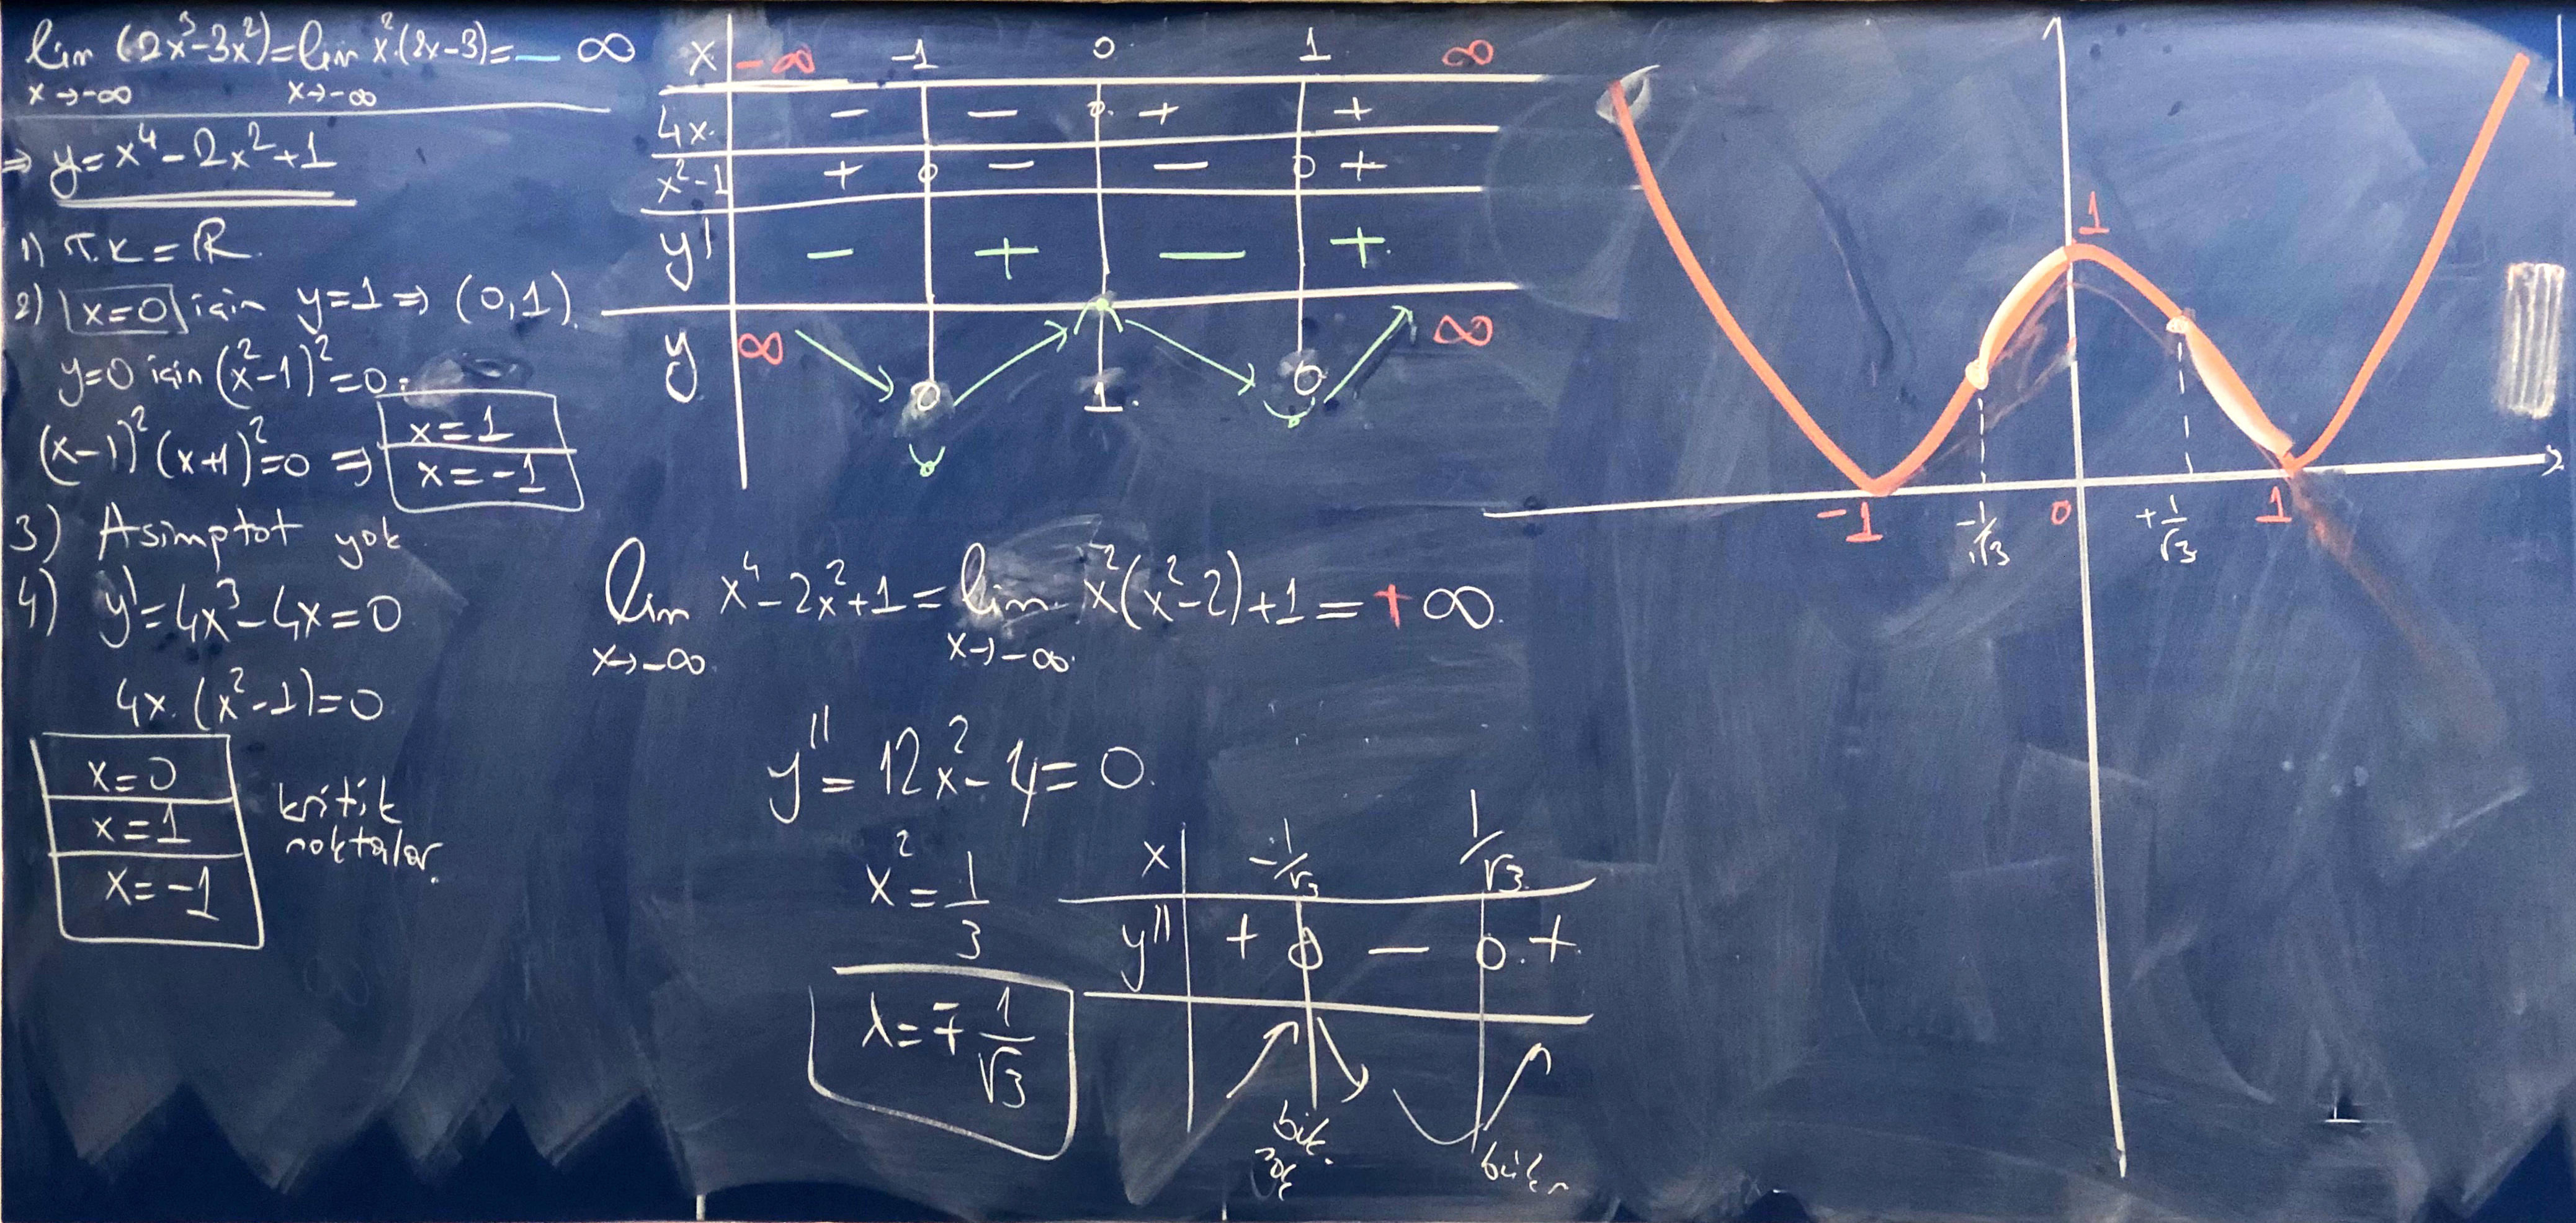 lim (2x³-3x²) = lim x²·(2x-3) = - ∞
x→-∞ x→-∞
⇒ y = x⁴ - 2x² + 1
1) T.K = ℝ.
2) x=0 için y=1 ⇒ (0,1).
y=0 için (x²-1)² = 0.
(x-1)² (x+1)² = 0 ⇒ x=1
x=-1
3) Asimptot yok
4) y' = 4x³ - 4x = 0
4x·(x²-1) = 0
x=0
x=1
x=-1
kritik
noktalar.
x -∞ -1 0 1 ∞
4x. - - 0 + +
x²-1 + 0 - - 0 +
y' - + - +
y ∞ 0 1. 0 ∞
lim x⁴-2x²+1 = lim x²(x²-2)+1 = +∞.
x→-∞ x→-∞
y'' = 12x² - 4 = 0.
x² = 1/3
x = ∓ 1/√3
x -1/√3 1/√3
y'' + 0 - 0 +
1
-1 -1/√3 0 +1/√3 1